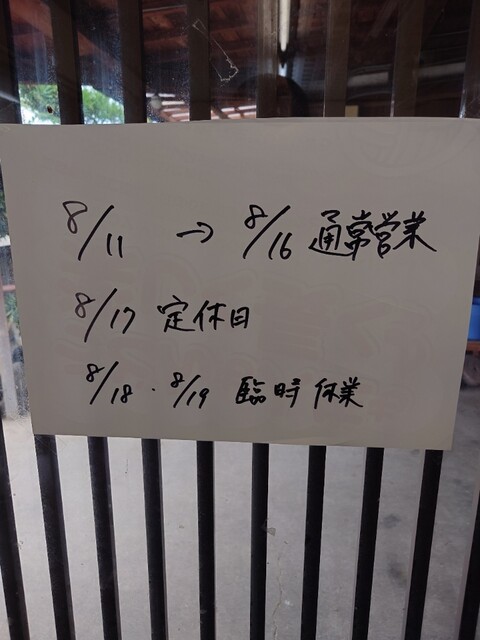 8/11 → 8/16 通常営業
8/17 定休日
8/18・8/19 臨時休業